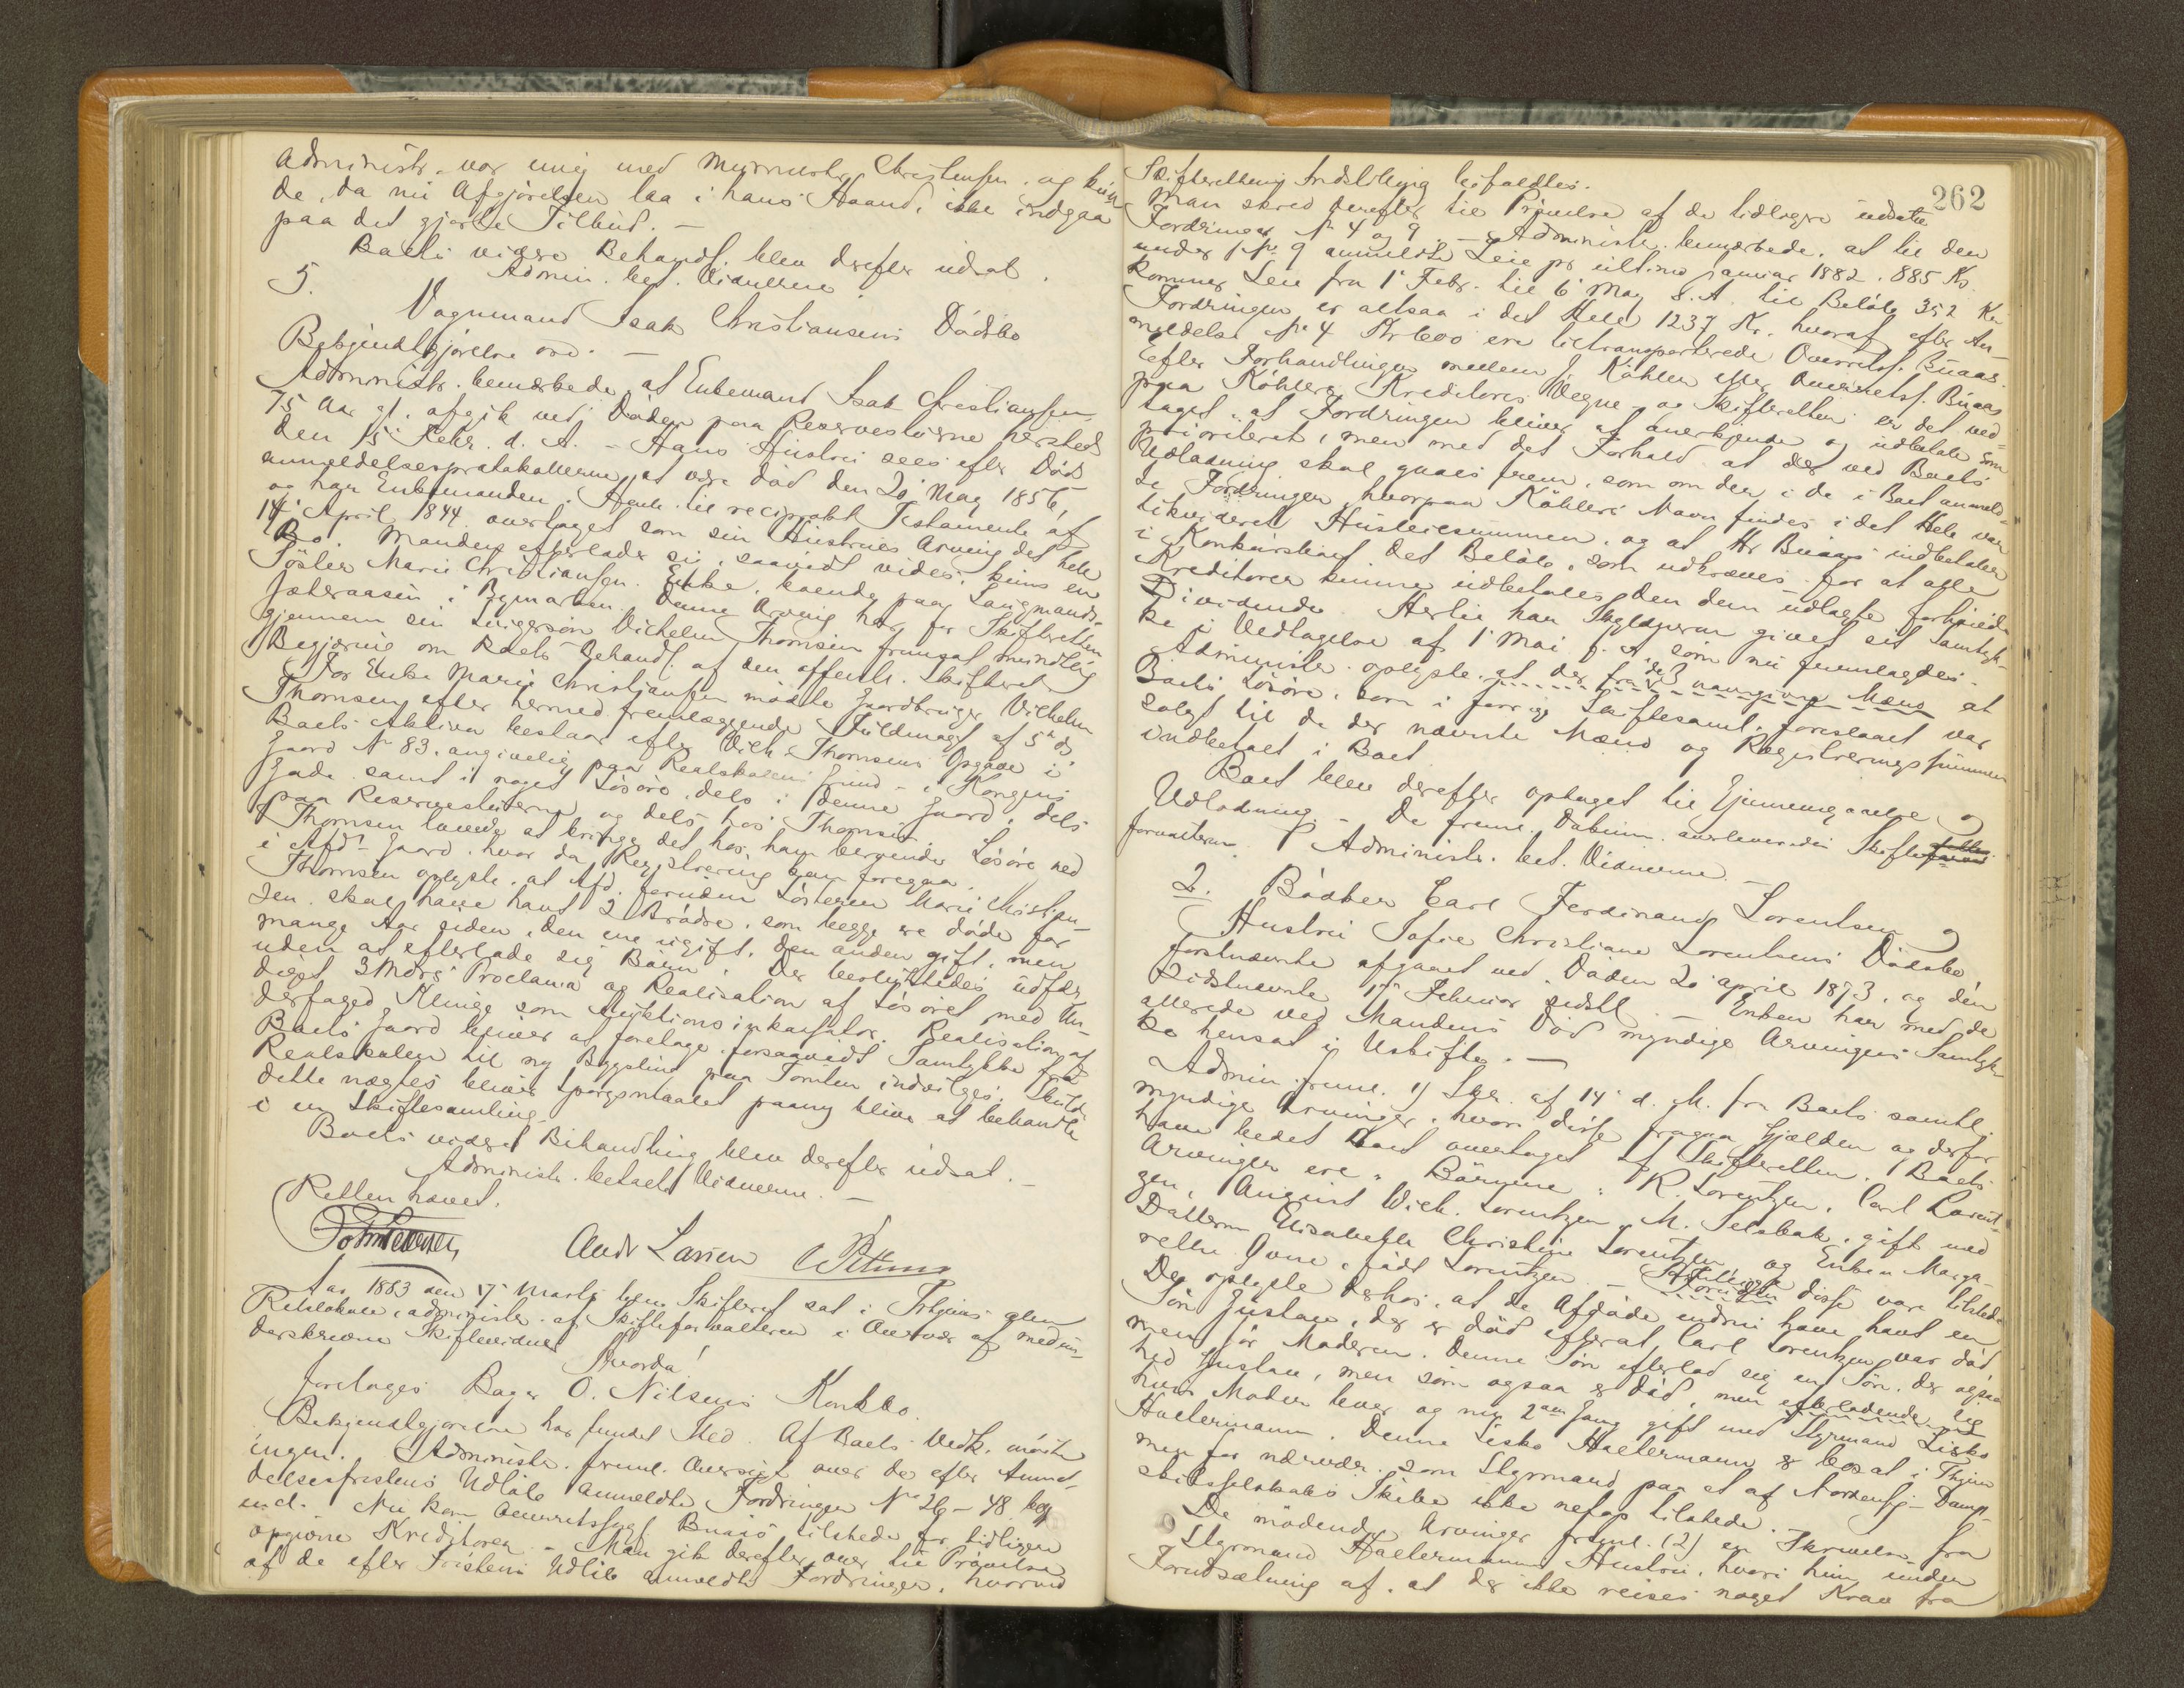 Administr. var enig med Murmester Christensen, og kun-
de, da nu Afgjörelsen laa i hans Haand, ikke indgaa
paa det gjorte Tilbud. —
Boets videre Behandl. blev derefter udsat.
Admin. bet. Vidnerne
5.
Vognmand Isak Christiansens Dödsbo
Bekjendtgjörelse ord. —
Administr. bemærkede, at Enkemand Isak Christiansen
75 Aar gl. afgik ved Döden paa Reservestuerne hersteds
den 15' Febr. d. A. – Hans Hustru sees efter Döds
anmeldelsesprotokollerne at være död den 20' Mag 1856,
og har Enkemanden i Henh. til reciprokt Testamente af
14' April 1844 overtaget som sin Hustrues Arving det hele
Bo. Manden efterlader sig, saavidt vides, kuns en
Söster Marie Christiansen, Enke, boende paa Laugmands-
sæteraasen i Bymarken. Denne Arving har for Skifteretten
gjennem sin Svigersön Vilhelm Thomsen fremsat mundtlig
Begjæring om Boets Behandl. af den offentl. Skifteret
For Enke Marie Christiansen mödte Gaardbruger Vilhelm
Thomsen efter hermed fremlæggende Fuldmagt af 5' ds
Boets Aktiva bestaar efter Vilh. Thomsens Opgave i
Gaard No 83, angivelig paa Realskolens Grund – i Kongens
Gade samt i noget Lösöre, dels i denne Gaard, dels
paa Reservestuerne og dels hos Thomsen.
Thomsen lovede at bringe det hos ham beroende Lösöre ned
i Afd. Gaard, hvor da Registrering kan foregaa.
Thomsen oplyste, at Afd. foruden Lösteren Marie Christian-
sen, skal have havt 2 Brödre, som begge ere döde for
mange Aar siden, den ene ugift, den anden gift, men
uden at efterlade sig Börn. Der besluttedes udfær-
diget 3 Mdrs Proclama og Realisation af Lösöret med Un-
derfoged Klinge som Auktionsinkassator. Realisation af
Boets Gaard bliver at foretage, forsaavidt Samtykke fra
Realskolen til ny Bygsling paa Tomten indvilges. Skulde
dette nægtes bliver Spörgsmaalet paany blive at behandle
i en Skiftesamling
Boets videre Behandling blev derefter udsat. –
Administr. betalte Vidnerne. —
Retten hævet.
Andr Larsen
Aar 1883 den 17' Marts blev Skifteret sat i Thjems alm
Retslokale, administr. af Skifteforvalteren i Overvær af medun-
derskrevne Skiftevidner
Hvorda!
foretages Bager O. Nilsens Konkbo.
Bekjendtgjörelse har fundet Sted. Af Boets Vedk. mödte
ingen. Administr. freml. Oversigt over de efter Anmel-
delsesfristens Udlöb anmeldte Fordringer No 26 – 48 beg
incl. Nu kom Overretssagf. Buaas tilstede for tidligere
opgivne Kreditorer. – Man gik derefter over til Prövelse
af de efter Fristens Udlöb anmeldte Fordringer, hvorved
262
Skifterettens Indstilling bifaldtes.
Man skred derefter til Prövelse af de tidligere udsatte
Fordringer No 4 og 9 – Administr. bemærkede, at til den
under No 9 anmeldte Leie pr ultimo Januar 1882, 885 Kr.
kommer Leie fra 1' Febr. til 6' Mag s. A. til Belöb 352 Kr
Fordringen er altsaa i det Hele 1237 Kr. hvoraf efter An-
meldelse No 4 Kr 600 ere tiltransporterede Overretssf. Buaas.
Efter Forhandlinger mellem J. Köhler eller Overretssf. Buaas
paa Köhlers Kreditorers Vegne – og Skifteretten er det ved-
taget, at Fordringen bliver at anerkjende og udbetale som
prioriteret, men med det Forhold at der ved Boets
Udlodning skal gaaes frem, som om den i de i Boet anmeld-
te Fordringer, hvorpaa Köhlers Navn findes i det Hele var
likvideret Husleiesummen, og at Hr Buaas indbetaler
i Konkursboet det Belöb, som udkræves for at alle
Kreditorer kunne udbetales den dem udlagte forhöiede
Dividende. Hertil har Skyldneren givet sit Samtyk-
ke i Vedtagelse af 1' Mai f. A. som nu fremlagdes.
Administr. oplyste, at der fra de 3 navngivne Mænd at
Boets Lösöre, som i forrige Skiftesaml. foreslaaet var
solgt til de der nævnte Mænd og Registreringssummen
indbetalt i Boet
Boet blev derefter optaget til Gjennemgaaelse og
Udlodning. – De freml. Dokum. overleveredes Skifte-
forvalteren. Administr. bet. Vidnerne –
2. Bödker Carl Ferdinand Lorentsen og
Hustru Sofie Christiane Lorentsens Dödsbo
Förstnævnte afgaaet ved Döden 20 april 1873, og den
sidstnævnte 17' Februar sidstl. – Enken har med de
allerede ved Mandens Död myndige Arvingers Samtyk-
ke hensat i Uskifte. —
Admin. freml. 1) Skr. af 14' d. M. fra Boets samtl.
myndige Arvinger, hvori disse fragaa Gjælden og derfor
have bedet Boet overtaget af Skifteretten. Boets
Arvinger ere: Börnene: R. Lorentzen, Carl Lorent-
zen, August Wilh. Lorentzen, M. Selsbak, gift med
Datteren Elisabeth Christine Lorentzen og Enken Marga-
rethe Qvne, födt Lorentzen. – disse vare tilstede
Der oplyste derhos, at de Afdöde endnu have havt en
Sön Gustav, der er död efterat Carl Lorentzen var död
men för Moderen. Denne Sön efterlod sig en Sön, der ogsaa
hed Gustav, men som ogsaa er död, men efterladende sig
hvis Moder lever og nu 2den Gang gift med Styrmand Lisko
Haltermann. Denne Lisko Haltermann er bosat i Thjem
men for nærvær. som Styrmand paa et af Nordenfj. Damp-
skibsselskabs Skibe ikke netop tilstede.
De mödende Arvinger freml. (2) en Skrivelse fra
Styrmand Haltermanns Hustru, hvori hun under
Forudsætning af, at der ikke reises noget Krav fra